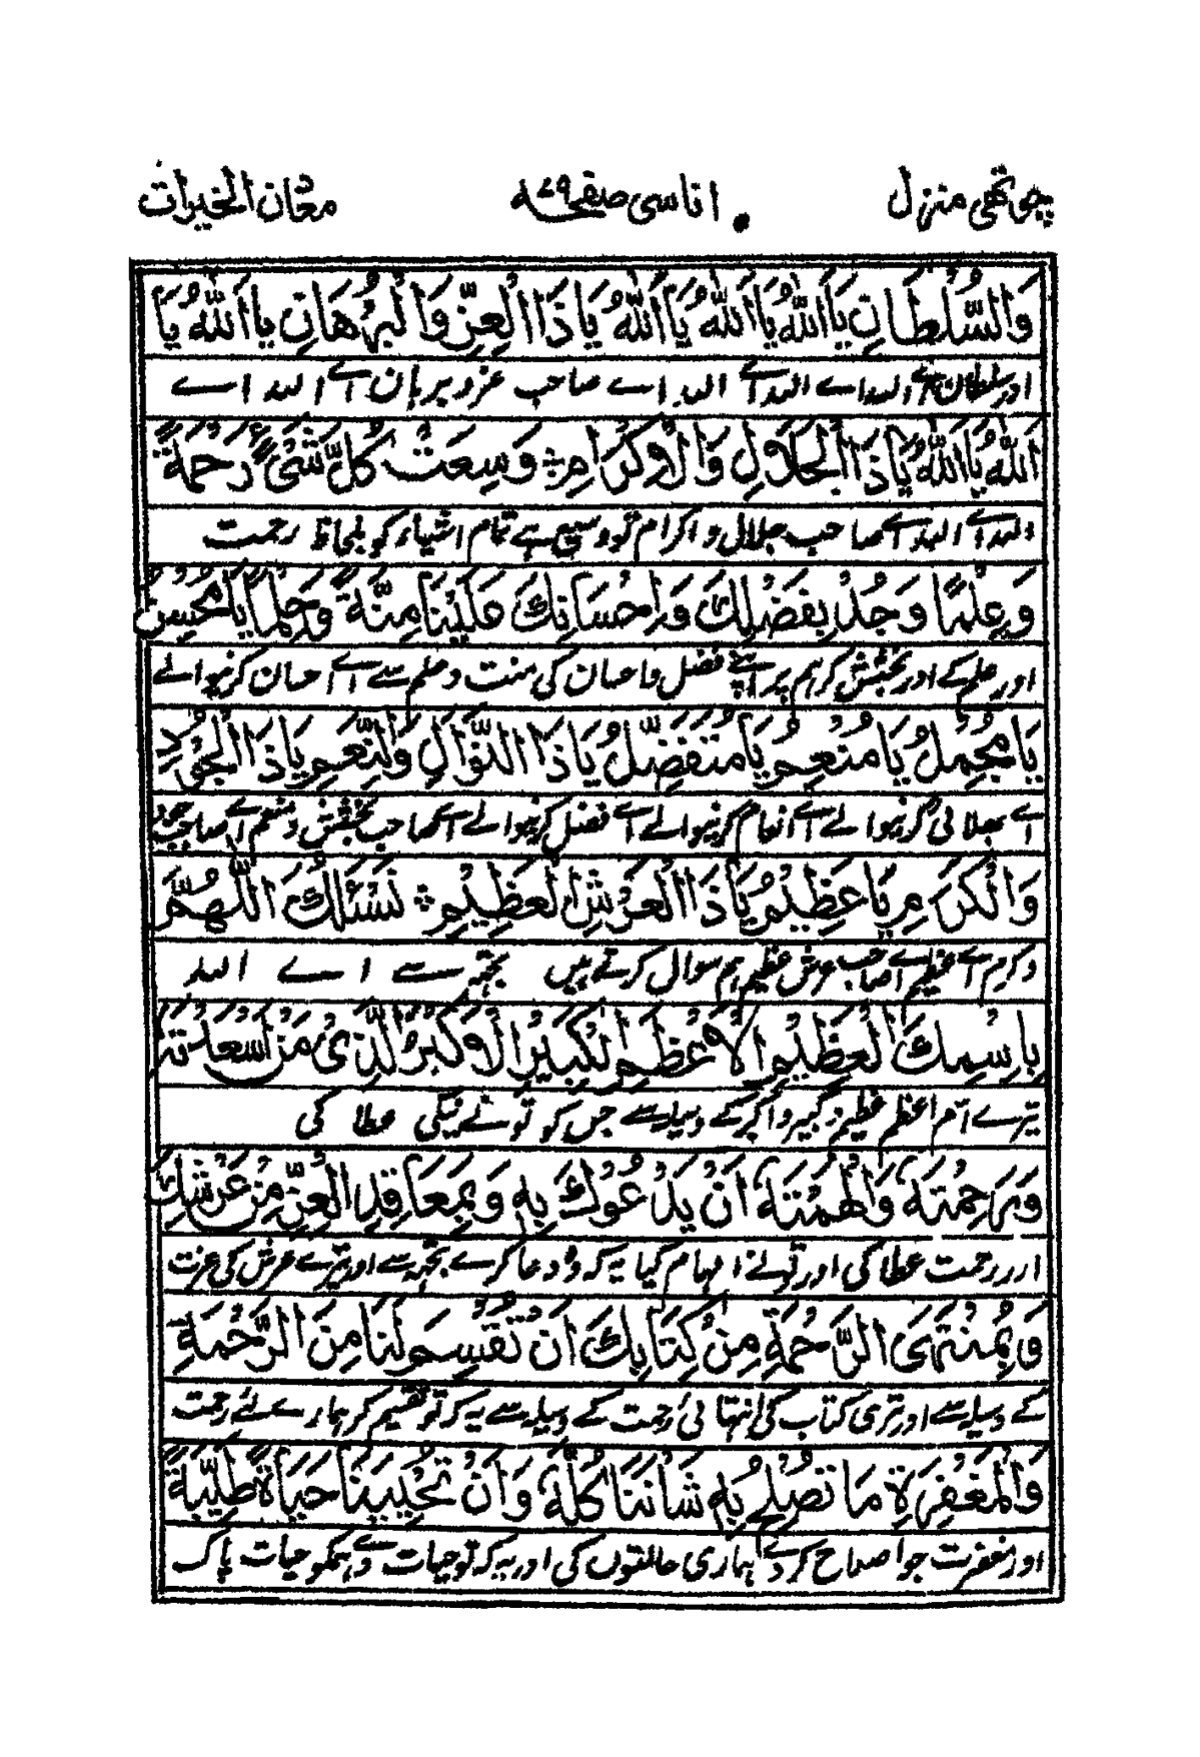 چوتھی منزل
اناسی صفحہ ٧٩
معان الخیرات
وَالسُّلْطَانِ یَا اَللّٰهُ یَا اَللّٰهُ یَا اَللّٰهُ یَا ذَا الْعِزِّ وَالْبُرْهَانِ یَا اَللّٰهُ یَا
اور سلطان اے اللہ اے اللہ اے اللہ اے صاحب عز و برہان اے اللہ اے
اَللّٰهُ یَا اَللّٰهُ یَا ذَا الْجَلَالِ وَالْاِکْرَامِ وَسِعَتْ کُلَّ شَیْءٍ رَحْمَةً
اللہ اے اللہ اے صاحب جلال و اکرام تو وسیع ہے تمام اشیاء کو بلحاظ رحمت
وَعِلْمًا وَجُدْ بِفَضْلِكَ وَاِحْسَانِكَ عَلَیْنَا مِنَّةً وَحِلْمًا یَا مُحْسِنُ
اور علم کے اور بخشش کر ہم پر اپنے فضل واحسان کی منت و حلم سے اے احسان کرنیوالے
یَا مُجْمِلُ یَا مُنْعِمُ یَا مُتَفَضِّلُ یَا ذَا النَّوَالِ وَالنِّعَمِ یَا ذَا الْجُوْدِ
اے بھلائی کرنیوالے اے انعام کرنیوالے اے فضل کرنیوالے اے صاحب بخشش و نعم اے صاحب جود
وَالْکَرَمِ یَا عَظِیْمُ یَا ذَا الْعَرْشِ الْعَظِیْمِ نَسْئَلُكَ اَللّٰهُمَّ
و کرم اے عظیم اے صاحب عرش عظیم ہم سوال کرتے ہیں تجھ سے اے اللہ
بِاسْمِكَ الْعَظِیْمِ الْاَعْظَمِ الْکَبِیْرِ الْاَکْبَرِ الَّذِیْ مَنْ اَسْعَدْتَهٗ
تیرے اسم اعظم عظیم و کبیر و اکبر کے وسیلہ سے جس کو تو نے نیکی عطا کی
وَرَحِمْتَهٗ وَاَلْهَمْتَهٗ اَنْ یَدْعُوْكَ بِهٖ وَبِمَعَاقِدِ الْعِزِّ مِنْ عَرْشِكَ
اور رحمت عطا کی اور تو نے الہام کیا یہ کہ وہ دعا کرے تجھ سے اور تیرے عرش کی عزت
وَبِمُنْتَهَی الرَّحْمَةِ مِنْ کِتَابِكَ اَنْ تَقْسِمَ لَنَا مِنَ الرَّحْمَةِ
کے وسیلہ سے اور تری کتاب کی انتہائی رحمت کے وسیلہ سے یہ کہ تو تقسیم کر ہمارے لئے رحمت
وَالْمَغْفِرَةِ مَا تُصْلِحُ بِهٖ شَأْنَنَا کُلَّهٗ وَاَنْ تُحْیِیَنَا حَیَاةً طَیِّبَةً
اور مغفرت جو اصلاح کر دے ہماری حالتوں کی اور یہ کہ تو حیات دے ہمکو حیات پاک